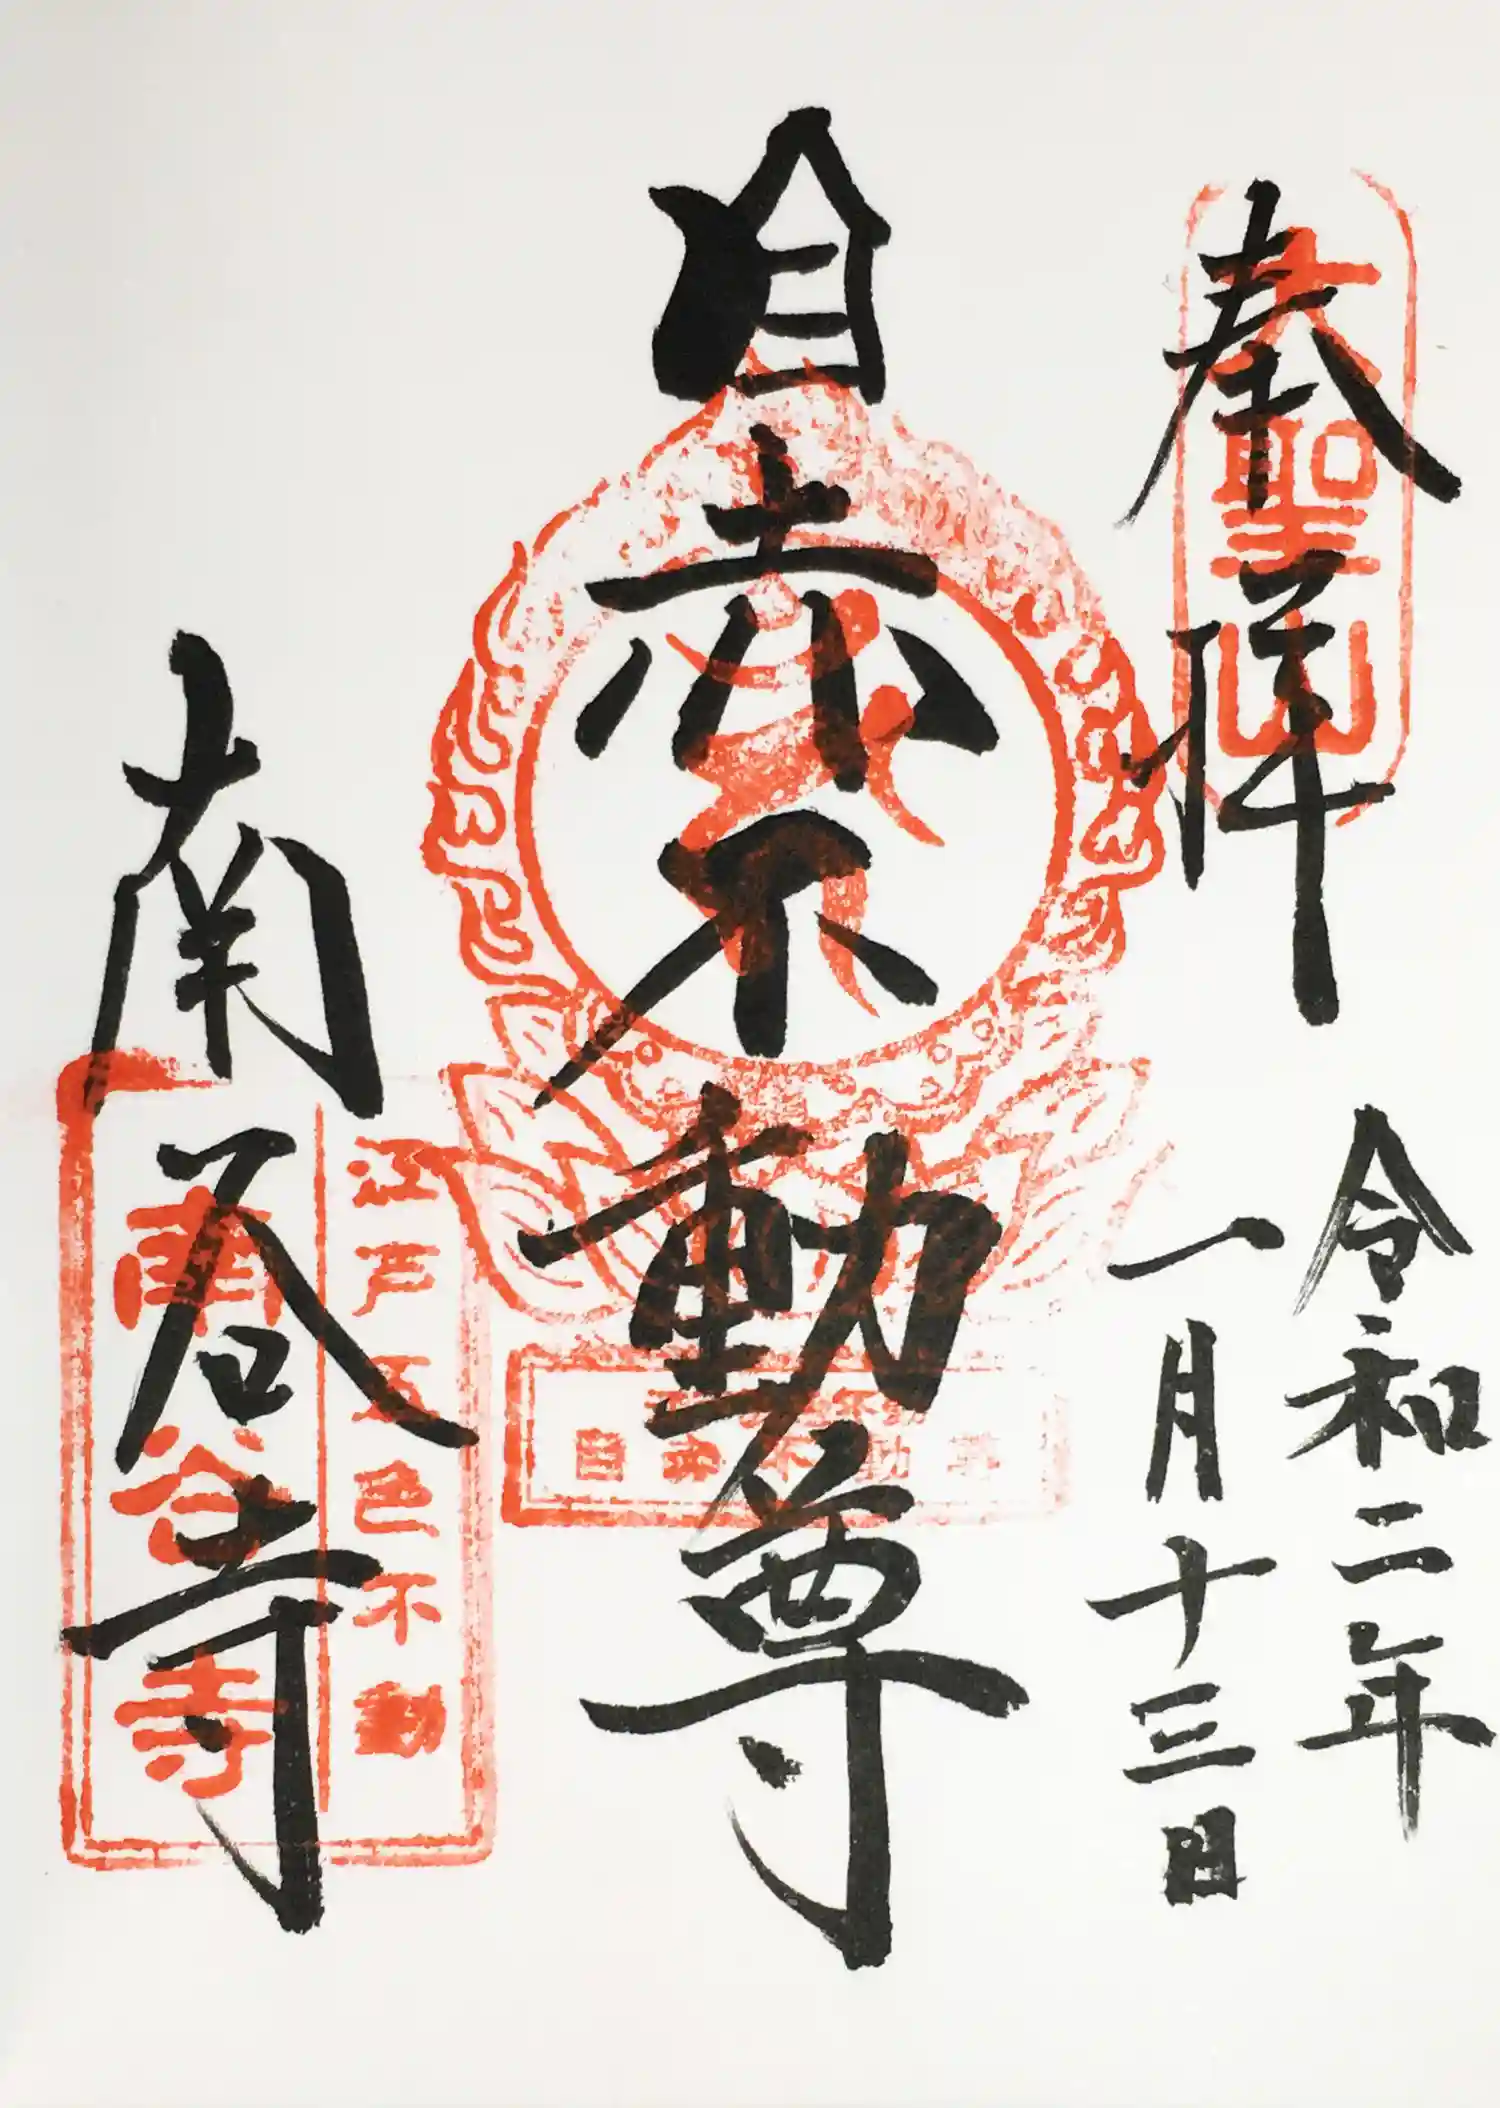 奉拝
大聖山
令和二年
一月十三日
目赤不動尊
目赤不動尊
江戸五色不動
南谷寺
南谷寺